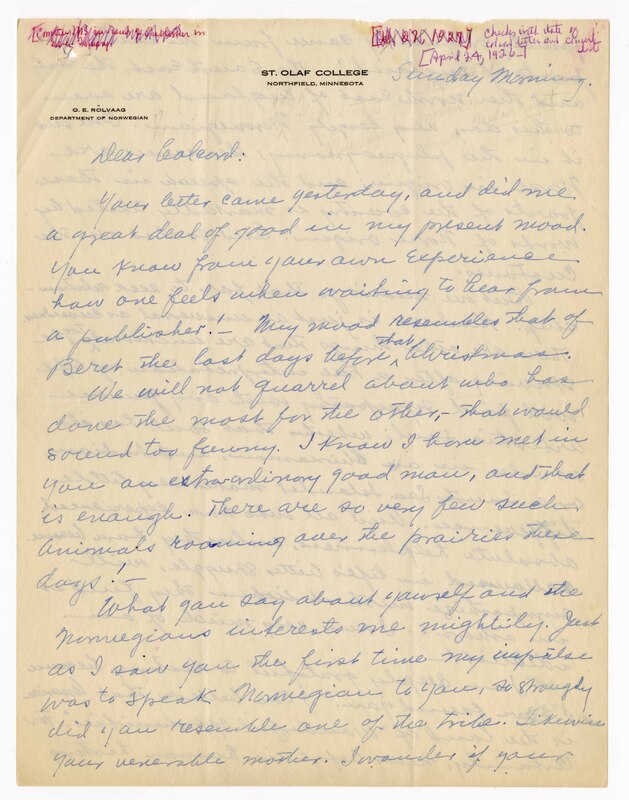 [April 24, 1926]
Checks with date of
ST. OLAF COLLEGE
NORTHFIELD, MINNESOTA
Sunday Morning.
O. E. ROLVAAG
DEPARTMENT OF NORWEGIAN
Dear Colcord:
Your letter came yesterday, and did me
a great deal of good in my present mood.
You know from your own experience
how one feels when waiting to hear from
a publisher! – My mood resembles that of
Beret the last days before that Christmas.
We will not quarrel about who has
done the most for the other, – that would
sound too funny. I know I have met in
you an extraordinary good man, and that
is enough. There are so very few such
animals roaming over the prairies these
days! –
What you say about yourself and the
Norwegians interests me mightily. Just
as I saw you the first time my impulse
was to speak Norwegian to you, so strongly
did you resemble one of the tribe. Likewise
your venerable mother. I wonder if your